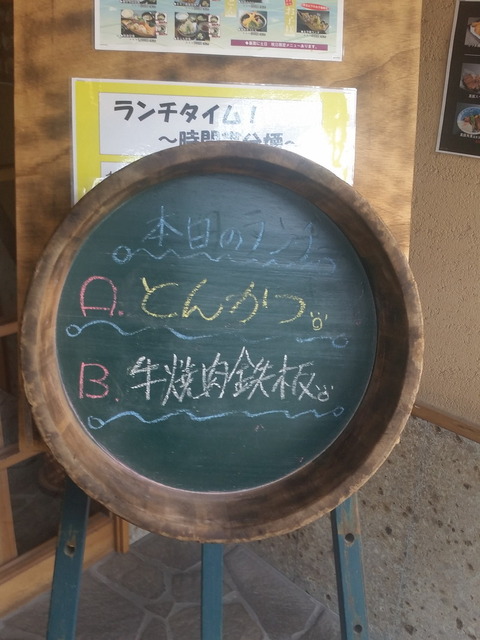 ランチタイム!
本日のランチ
A. とんかつ
B. 牛焼肉鉄板